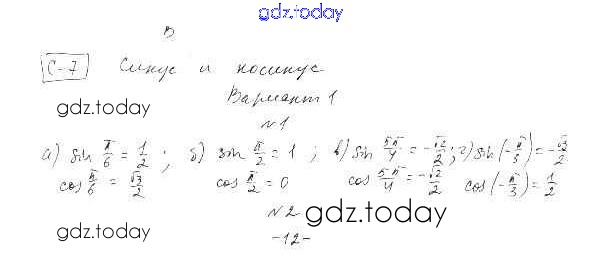 gdz.today
В
С-7 Синус и косинус
gdz.today
Вариант 1
№1
а) sin π/6 = 1/2 ; б) sin π/2 = 1 ; в) sin 5π/4 = -√2/2 ; г) sin(-π/3) = -√3/2
cos π/6 = √3/2 cos π/2 = 0 cos 5π/4 = -√2/2 cos(-π/3) = 1/2
№2
gdz.today
gdz.today
-12-